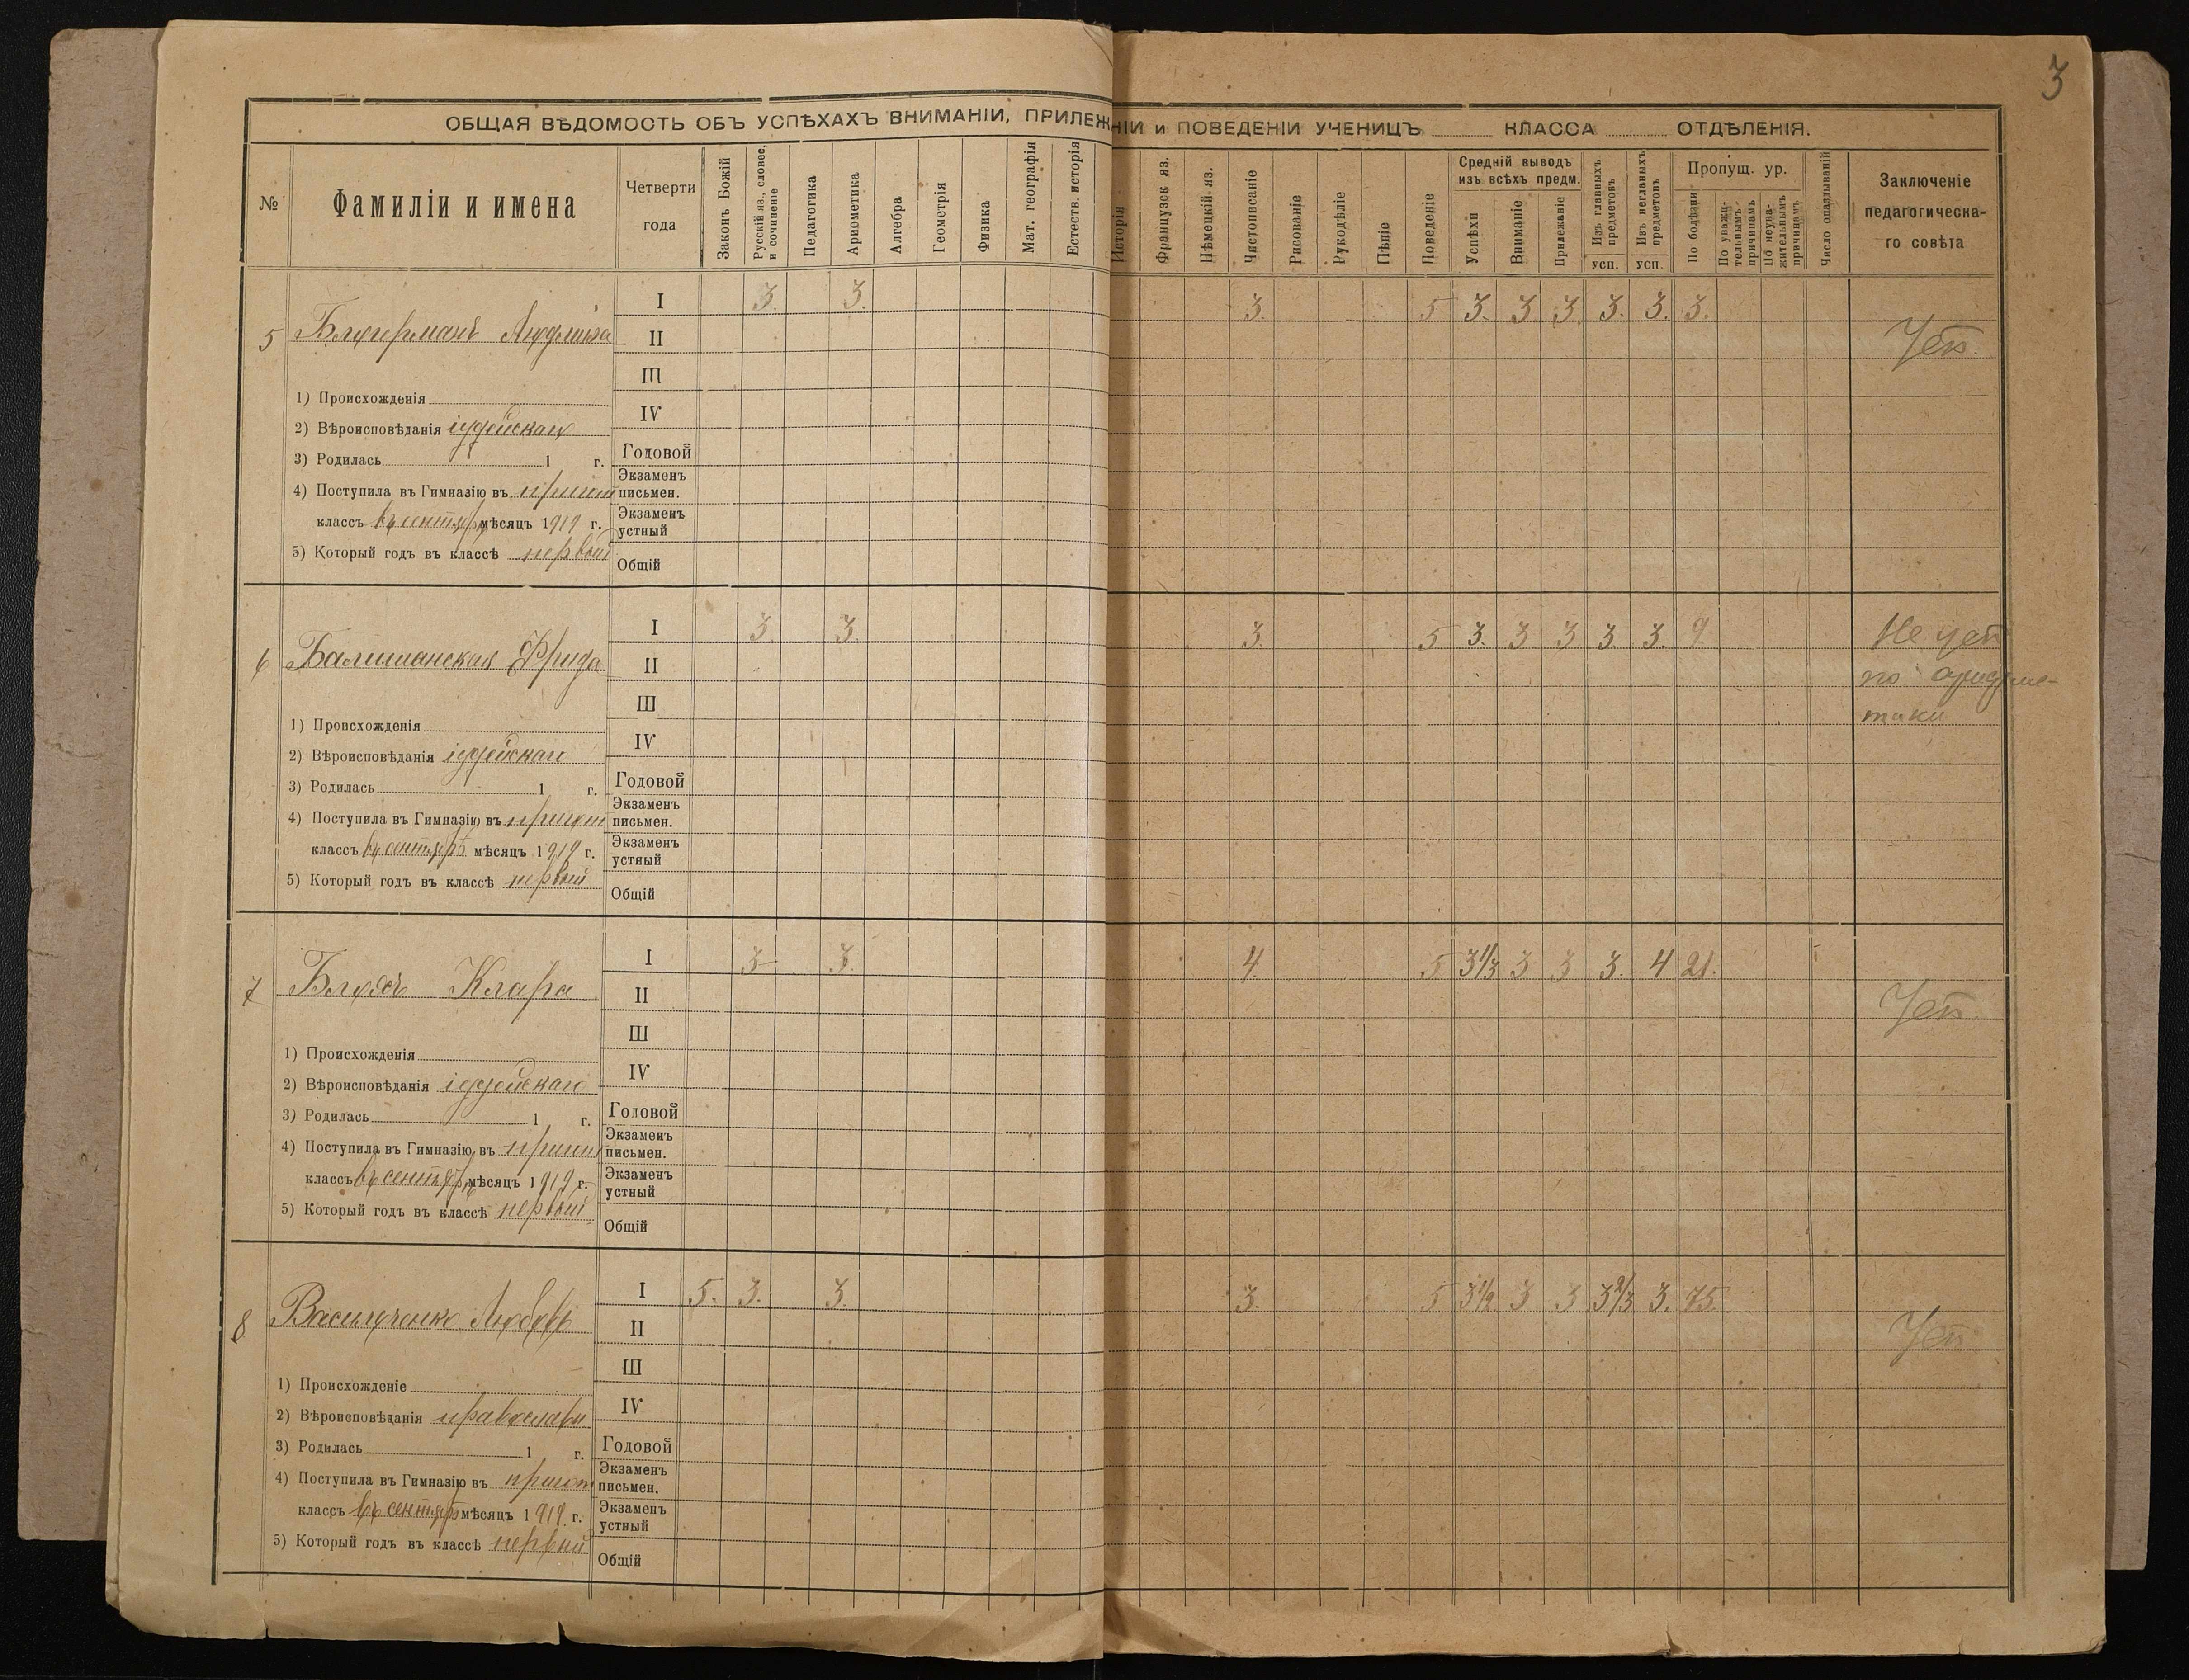 3
ОБЩАЯ ВѢДОМОСТЬ ОБЪ УСПѢХАХЪ ВНИМАНІИ, ПРИЛЕЖНІИ и ПОВЕДЕНІИ УЧЕНИЦЪ КЛАССА ОТДѢЛЕНІЯ.
№
Фамиліи и имена
Четверти года
Законъ Божій
Русскій яз., словес. и сочиненіе
Педагогика
Ариѳметика
Алгебра
Геометрія
Физика
Мат. географія
Естеств. исторія
Исторія
Французск яз.
Нѣмецкій яз.
Чистописаніе
Рисованіе
Рукодѣліе
Пѣніе
Поведеніе
Средній выводъ изъ всѣхъ предм.
Успѣхи
Вниманіе
Прилежаніе
Изъ главныхъ предметовъ
усп.
Изъ неглавныхъ предметовъ
усп.
Пропущ. ур.
По болѣзни
По уважительнымъ причинамъ
По неуважительнымъ причинамъ
Число опаздываній
Заключеніе
педагогическа-
го совѣта
5 Людмила
I 3. 3. 3. 5 3. 3 3. 3. 3. 3.
II Усп.
III
1) Происхожденія
IV
2) Вѣроисповѣданія іудейскаго
Годовой
3) Родилась 1 г.
Экзаменъ письмен.
4) Поступила въ Гимназію въ пригот
Экзаменъ устный
классъ въ сентябр мѣсяцъ 1919 г.
5) Который годъ въ классѣ первый
Общій
6 Фрида
I 3. 3. 3. 5 3. 3 3 3. 3. 9. Не усп
II по
III тики
1) Происхожденія
IV
2) Вѣроисповѣданія іудейскаго
Годовой
3) Родилась 1 г.
Экзаменъ письмен.
4) Поступила въ Гимназію въ пригот
Экзаменъ устный
классъ въ сентябрѣ мѣсяцъ 1919 г.
5) Который годъ въ классѣ первый
Общій
7 Клара
I 3 3. 4. 5 3 1/3 3 3 3. 4 21.
II Усп.
III
1) Происхожденія
IV
2) Вѣроисповѣданія іудейскаго
Годовой
3) Родилась 1 г.
Экзаменъ письмен.
4) Поступила въ Гимназію въ пригот
Экзаменъ устный
классъ въ сентябр мѣсяцъ 1919 г.
5) Который годъ въ классѣ первый
Общій
8 Васильченко Любовь
I 5. 3. 3. 3. 5 3 1/2. 3 3 3 2/3 3. 75.
II Усп.
III
1) Происхожденіе
IV
2) Вѣроисповѣданія православн
Годовой
3) Родилась 1 г.
Экзаменъ письмен.
4) Поступила въ Гимназію въ пригот
Экзаменъ устный
классъ въ сентябр мѣсяцъ 1919. г.
5) Который годъ въ классѣ первый
Общій